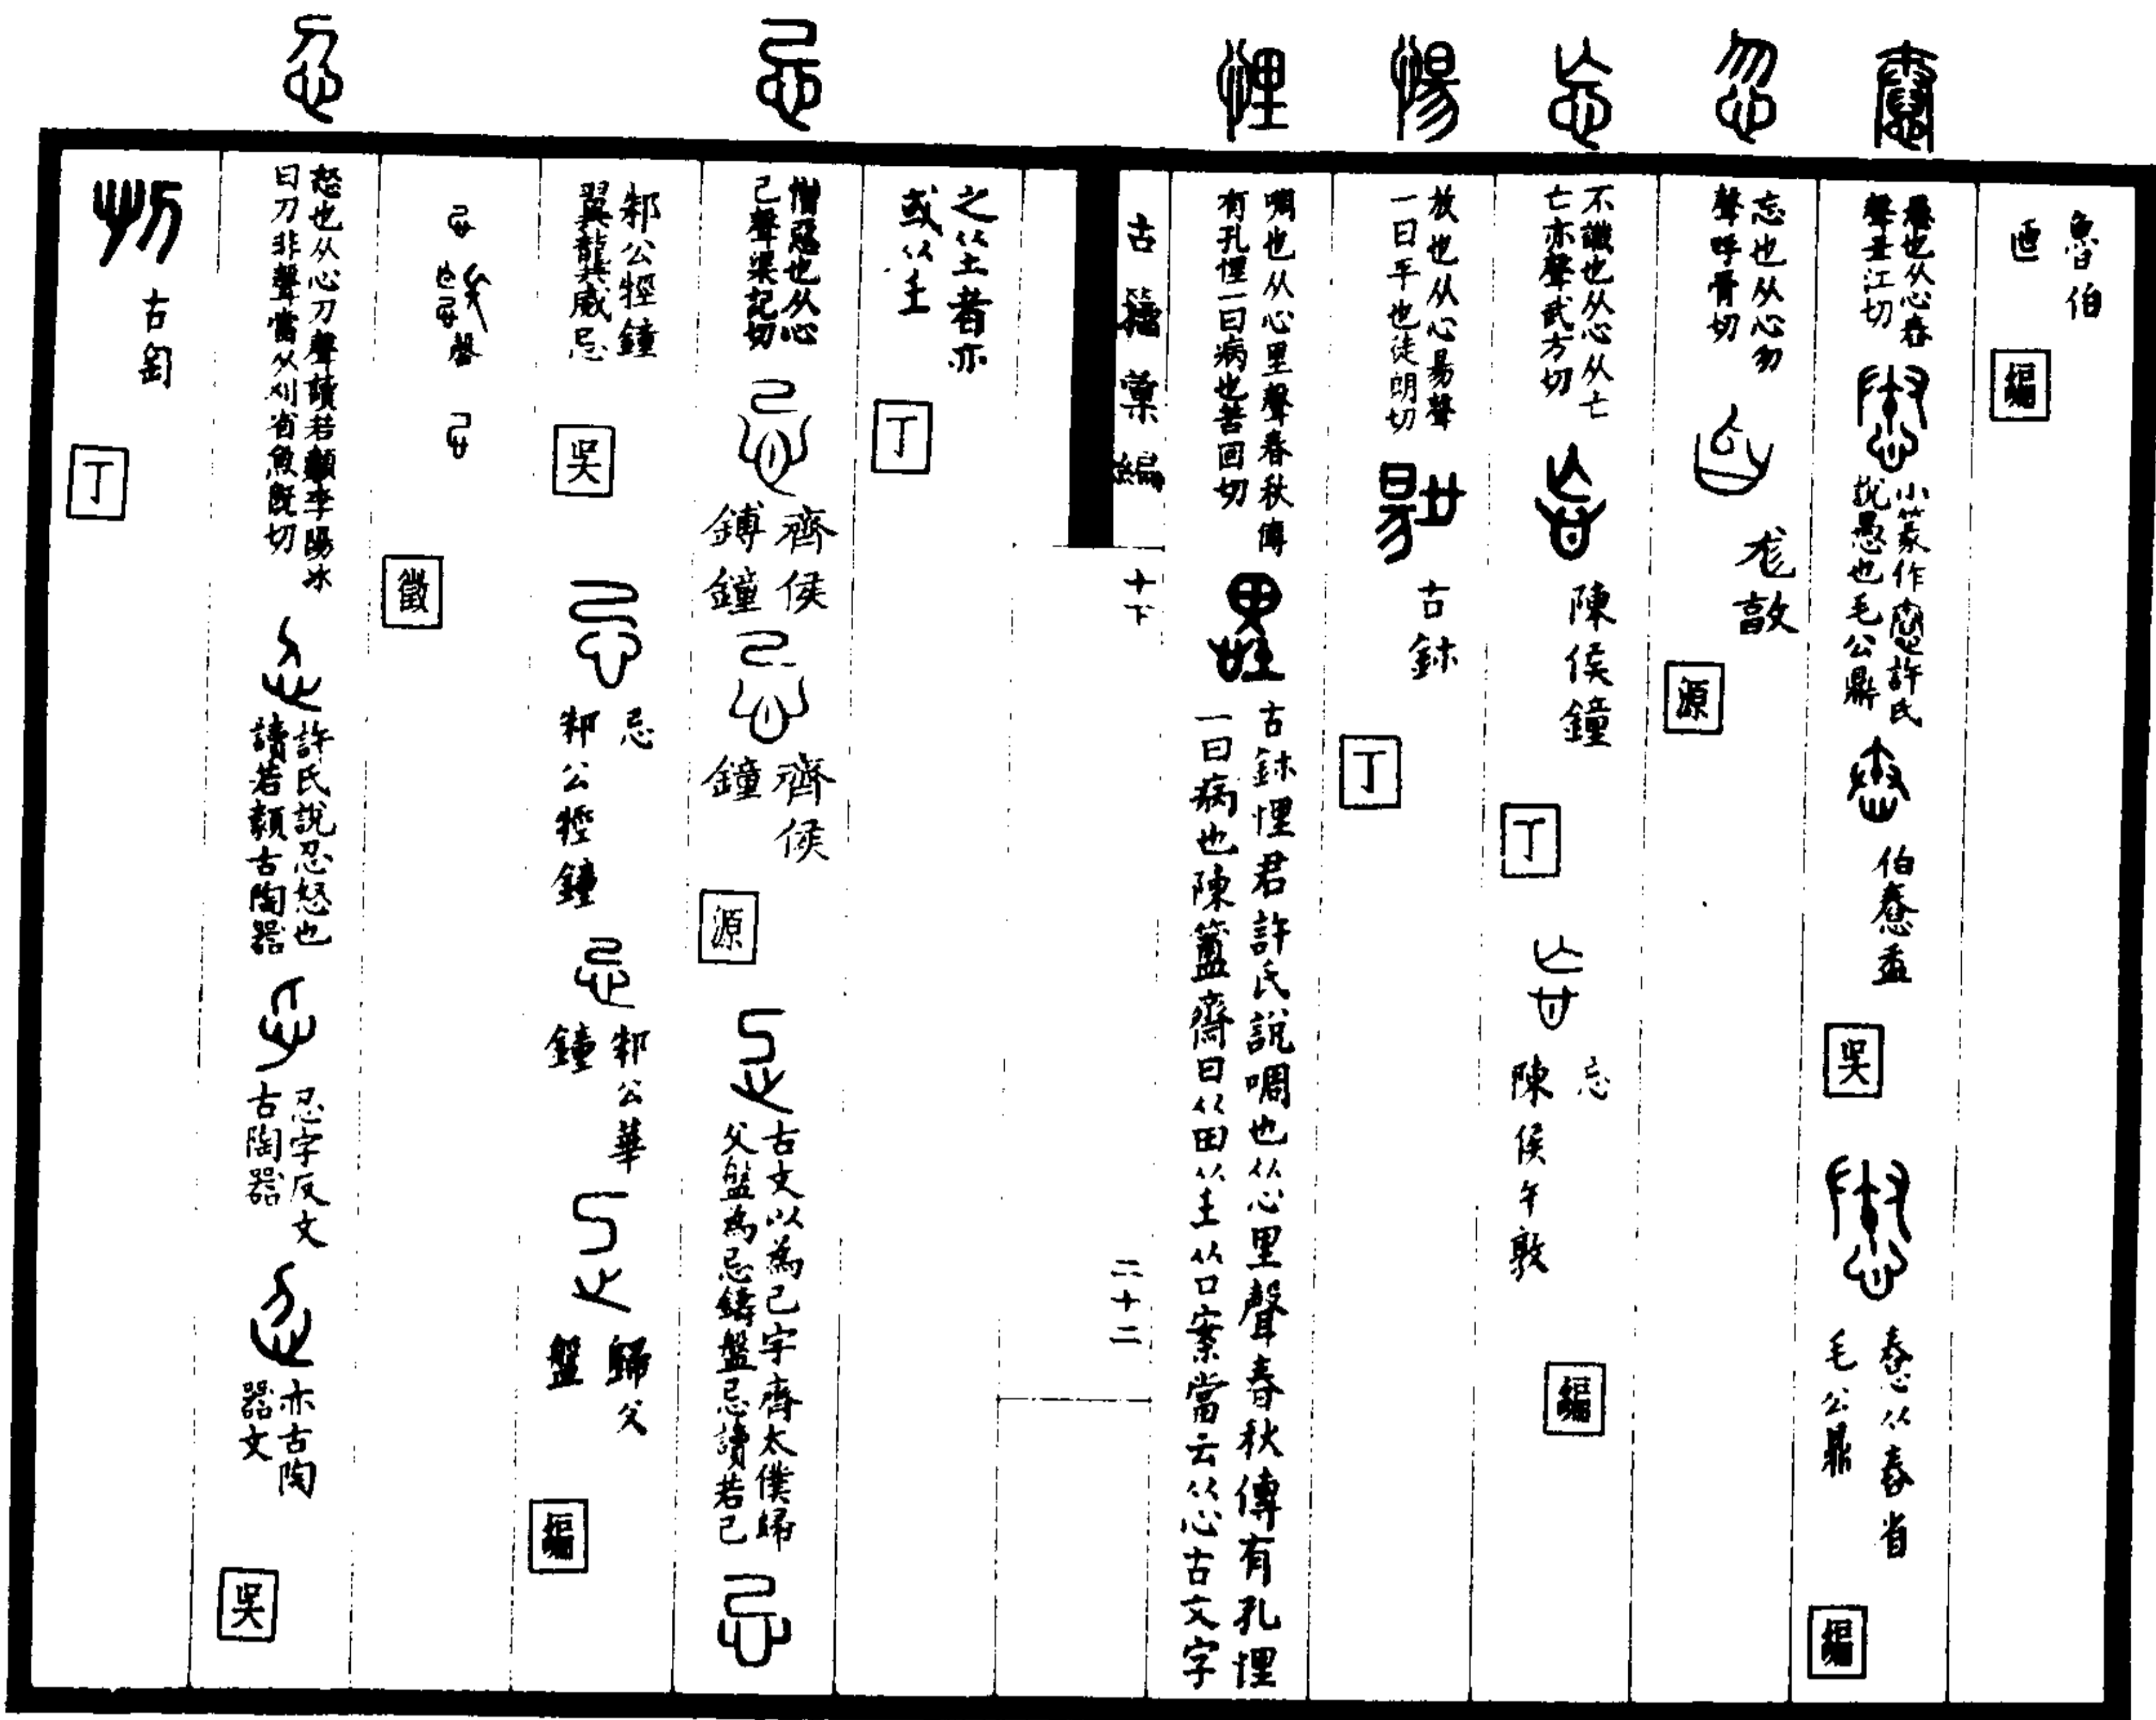 魯伯
匜
編
愚也从心舂
聲丑江切
小篆作憃許氏
說愚也毛公鼎
伯憃盉
吳
憃从舂省
毛公鼎
編
忘也从心勿
聲呼骨切
敦
源
不識也从心从亡
亡亦聲武方切
陳侯鐘
丁
忘
陳侯午敦
編
放也从心昜聲
一曰平也徒朗切
古鉥
丁
啁也从心里聲春秋傳
有孔悝一曰病也苦回切
古鉥悝君許氏說啁也从心里聲春秋傳有孔悝
一曰病也陳簠齋曰从田从土从口案當云从心古文字
古籀彙編
十下
二十二
之从土者亦
或从王
丁
憎惡也从心
己聲渠記切
齊侯
鎛鐘
齊侯
鐘
源
古文以為己字齊太僕歸
父盤為忌鑄盤忌讀若己
邾公牼鐘
翼龏威忌
吳
忌
邾公牼鐘
邾公華
鐘
歸父
盤
編
徵
怒也从心刀聲讀若顡李陽冰
曰刀非聲當从刈省魚既切
許氏說忍怒也
讀若顡古陶器
忍字反文
古陶器
亦古陶
器文
吳
古
丁